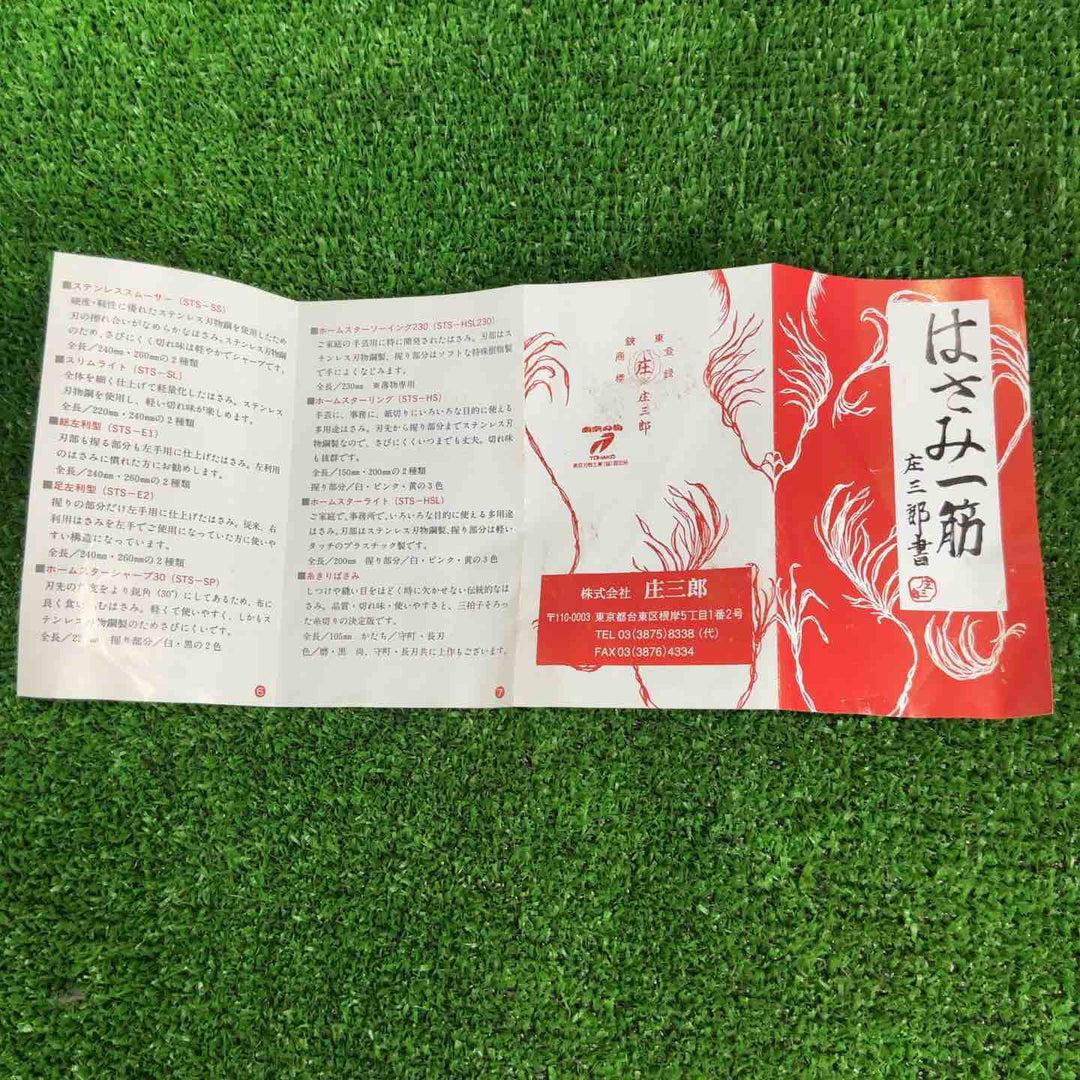 ■ステンレススムーサー(STS-SS)
硬度・靱性に優れたステンレス刃物鋼を使用したため
刃の擦れ合いがなめらかなはさみ。ステンレス刃物鋼
のため、さびにくく切れ味は軽やかでシャープです。
全長/240mm・260mmの2種類
■スリムライト(STS-SL)
全体を細く仕上げて軽量化したはさみ。ステンレス
刃物鋼を使用し、軽い切れ味が楽しめます。
全長/220mm・240mmの2種類
■総左利型(STS-E1)
刃部も握る部分も左手用に仕上げたはさみ。左利用
のはさみに慣れた方にお勧めします。
全長/240mm・260mmの2種類
■足左利型(STS-E2)
握りの部分だけ左手用に仕上げたはさみ。従来、右
利用はさみを左手でご使用になっていた方に使いや
すい構造になっています。
全長/240mm・260mmの2種類
■ホームスターシャープ30(STS-SP)
刃先の角度をより鋭角(30°)にしてあるため、布に
良く食い込むはさみ。軽くて使いやすく、しかもス
テンレス刃物鋼製のためさびにくいです。
握り部分/白・黒の2色
6
■ホームスターソーイング230(STS-HSL230)
ご家庭の手芸用に特に開発されたはさみ。刃部はス
テンレス刃物鋼製、握り部分はソフトな特殊樹脂製
で手によくなじみます。
全長/230mm ※薄物専用
■ホームスターリング(STS-HS)
手芸に、事務に、紙切りにいろいろな目的に使える
多用途はさみ。刃先から握り部分までステンレス刃
物鋼製なので、さびにくくいつまでも丈夫。切れ味
も抜群です。
全長/150mm・200mmの2種類
握り部分/白・ピンク・黄の3色
■ホームスターライト(STS-HSL)
ご家庭で、事務所で、いろいろな目的に使える多用途
はさみ。刃部はステンレス刃物鋼製、握り部分は軽い
タッチのプラスチック製です。
全長/200mm 握り部分/白・ピンク・黄の3色
■糸きりばさみ
しつけや縫い目をほどく時に欠かせない伝統的なは
さみ。品質・切れ味・使いやすさと、三拍子そろっ
た糸切りの決定版です。
全長/105mm かたち/守町・長刃
色/磨・黒 尚、守町・長刃共に上作もございます。
7
東京
登録
商標
庄
庄三郎
TOHAKO
株式会社 庄三郎
〒110-0003 東京都台東区根岸5丁目1番2号
TEL 03(3875)8338(代)
FAX 03(3876)4334
はさみ一筋
庄三郎書